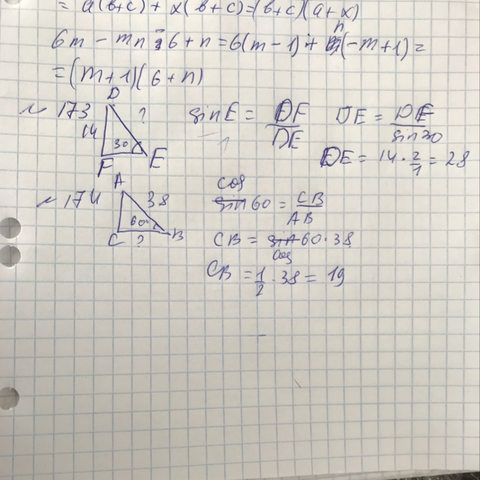 = a(b+c) + x(b+c)=(b+c)(a+x)
6m - mn - 6 + n = 6(m-1) + n(-m+1) =
= (m+1)(6+n)
№ 173
D
?
14
30
F
E
sin E = DF/DE
DE = DF/sin30
DE = 14 · 2/1 = 28
№ 174
A
38
60
C
?
B
cos 60 = CB/AB
CB = cos 60 · 38
CB = 1/2 · 38 = 19